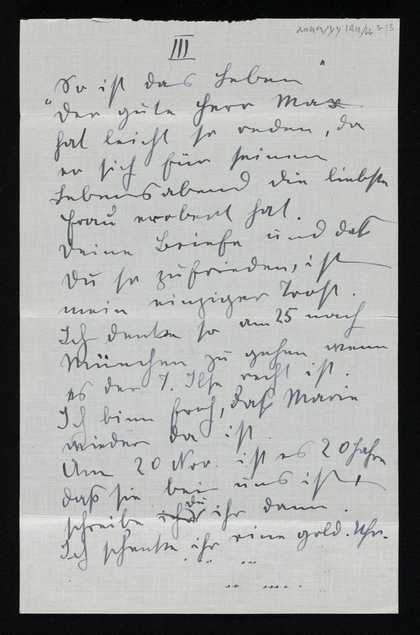 III
"So ist das Leben"
Der gute Herr Max
hat leicht so reden, da
er sich für seinen
Lebensabend die liebste
Frau erobert hat.
Deine Briefe und daß
Du so zufrieden, ist
mein einziger Trost.
Ich denke so am 25 nach
München zu gehen wenn
es der l. Ilse recht ist.
Ich binn froh, daß Marie
wieder da ist.
Am 20 Nov. ist es 20 Jahre
daß sie bei uns ist,
schreibe du ihr dann.
Ich schenke ihr eine gold. Uhr.